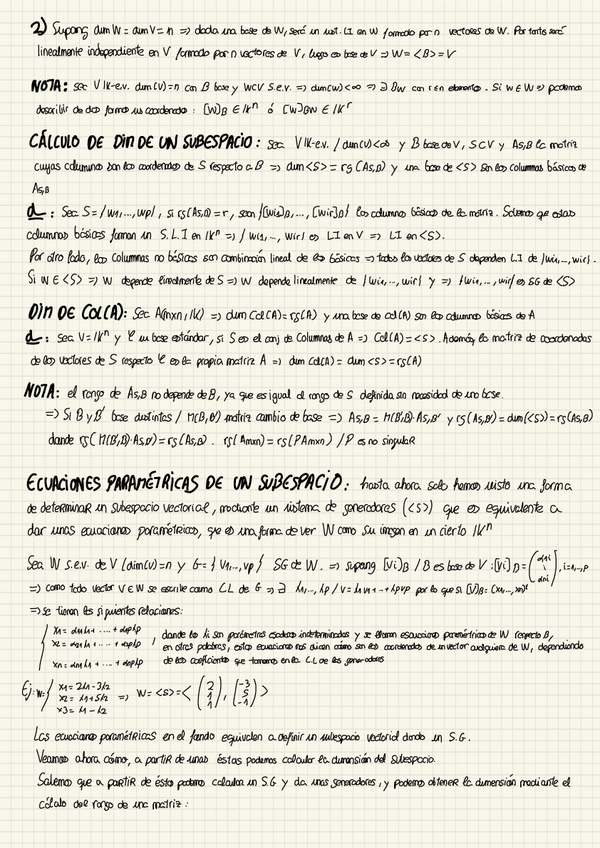 2) Supong dim W = dim V = n => dada una base de W, será un sist. LI en W formado por n vectores de W. Por tanto será
linealmente independiente en V formado por n vectores de V, luego es base de V => W = <B> = V
NOTA: sea V K-e.v. dim(V)=n con B base y W⊂V s.e.v. => dim(W)<∞ => ∃ B_W con r≤n elementos. Si w∈W => podemos
describir de dos formas sus coordenadas: [W]_B ∈ K^n ó [W]_BW ∈ K^r
CÁLCULO DE DIM DE UN SUBESPACIO: Sea V K-e.v. / dim(V)<∞ y B base de V, S⊂V y A_S,B la matriz
cuyas columnas son las coordenadas de S respecto a B => dim<S> = rg(A_S,B) y una base de <S> son las columnas básicas de
A_S,B
d: Sea S={w1,...,wp}, si rg(A_S,B)=r, sean {[wi1]_B,...,[wir]_B} las columnas básicas de la matriz. Sabemos que estas
columnas básicas forman un S.L.I en K^n => {wi1,...,wir} es LI en V => LI en <S>.
Por otro lado, las columnas no básicas son combinación lineal de las básicas => todos los vectores de S dependen LI de {wi1,...,wir}.
Si w∈<S> => w depende linealmente de S => w depende linealmente de {wi1,...,wir} y => {wi1,...,wir} es SG de <S>
DIM DE COL(A): Sea A(mxn, K) => dim Col(A)=rg(A) y una base de col(A) son las columnas básicas de A
d: Sea V=K^n y C su base estándar, si S es el conj de columnas de A => Col(A)=<S>. Además, la matriz de coordenadas
de los vectores de S respecto C es la propia matriz A => dim Col(A) = dim<S> = rg(A)
NOTA: el rango de A_S,B no depende de B, ya que es igual al rango de S definida sin necesidad de una base.
=> Si B y B' base distintas / M(B,B') matriz cambio de base => A_S,B = M(B',B)·A_S,B' y rg(A_S,B')=dim(<S>)=rg(A_S,B)
donde rg(M(B',B)·A_S,B')=rg(A_S,B). rg(Amxn)=rg(PAmxn) / P es no singular
ECUACIONES PARAMÉTRICAS DE UN SUBESPACIO: hasta ahora solo hemos visto una forma
de determinar un subespacio vectorial, mediante un sistema de generadores (<S>) que es equivalente a
dar unas ecuaciones paramétricas, que es una forma de ver W como su imagen en un cierto K^n
Sea W s.e.v. de V (dim(V)=n y G={v1,...,vp} SG de W. => supong [vi]_B / B es base de V: [vi]_B = (α1i ⋮ αni), i=1,...,p
=> como todo vector v∈W se escribe como CL de G => ∃ λ1,...,λp / v=λ1v1+...+λpvp por lo que si [v]_B=(x1,...,xn)^t
=> se tienen las siguientes relaciones:
x1 = α11λ1 + .... + α1pλp
x2 = α21λ1 + ... + α2pλp
xn = αn1λ1 + ... + αnpλp
donde los λi son parámetros escalares indeterminados y se llaman ecuaciones paramétricas de W respecto B,
en otras palabras, estas ecuaciones nos dicen cómo son las coordenadas de un vector cualquiera de W, dependiendo
de los coeficientes que tomemos en la CL de los generadores
Ej: W= { x1 = 2λ1-3λ2
x2 = λ1+5λ2
x3 = λ1-λ2
=> W=<S>=< (2 1 1), (-3 5 -1) >
Las ecuaciones paramétricas en el fondo equivalen a definir un subespacio vectorial dando un S.G.
Veamos ahora cómo, a partir de unas éstas podemos calcular la dimensión del subespacio.
Sabemos que a partir de ésta podemos calcular un S.G y da unos generadores, y podemos obtener la dimensión mediante el
cálculo del rango de una matriz: